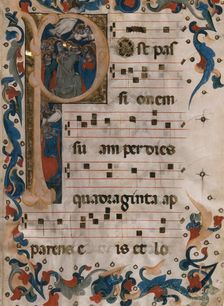 Post pas
si onem
su am per dies
quadraginta ap
parens et lo